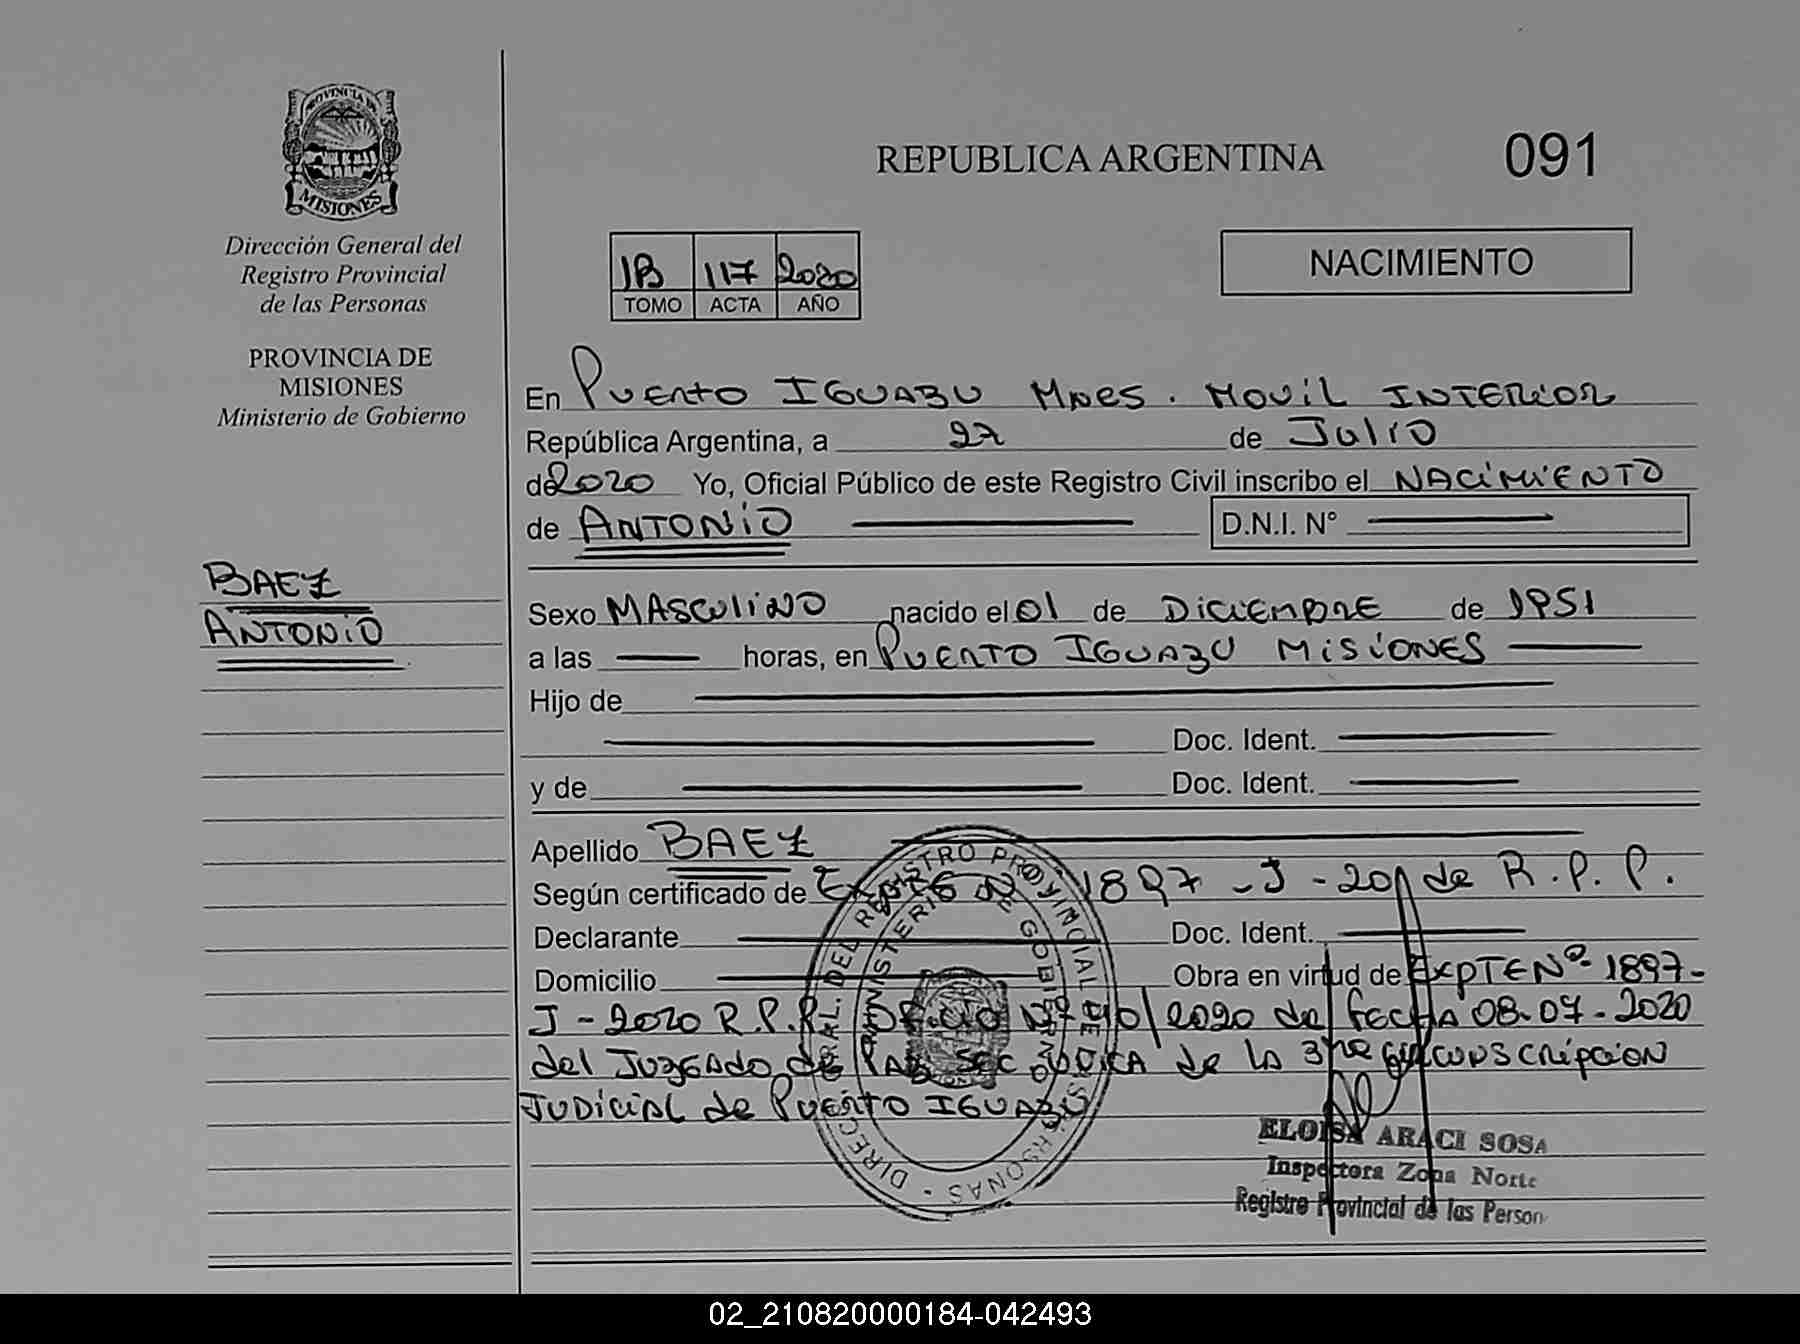 PROVINCIA DE
MISIONES
Dirección General del
Registro Provincial
de las Personas
PROVINCIA DE
MISIONES
Ministerio de Gobierno
BAEZ
ANTONIO
REPUBLICA ARGENTINA
091
1B 117 2020
TOMO ACTA AÑO
NACIMIENTO
En PUERTO IGUAZU Mnes. MOVIL INTERIOR
República Argentina, a 27 de JULIO
de 2020 Yo, Oficial Público de este Registro Civil inscribo el NACIMIENTO
de ANTONIO D.N.I. N°
Sexo MASCULINO nacido el 01 de DICIEMBRE de 1951
a las horas, en PUERTO IGUAZU MISIONES
Hijo de
Doc. Ident.
y de Doc. Ident.
Apellido BAEZ
Según certificado de EXPTE Nº 1897 - J - 20 de R.P.P.
Declarante Doc. Ident.
Domicilio Obra en virtud de EXPTE Nº 1897-
J - 2020 R.P.P. OFICIO /2020 de FECHA 08-07-2020
del JUZGADO de PAZ de LA 3ra CIRCUNSCRIPCION
JUDICIAL de PUERTO IGUAZU
DIRECC. GRAL. DEL REGISTRO PROVINCIAL DE LAS PERSONAS
MINISTERIO DE GOBIERNO
ELOISA ARACI SOSA
Inspectora Zona Norte
Registro Provincial de las Person
02_210820000184-042493